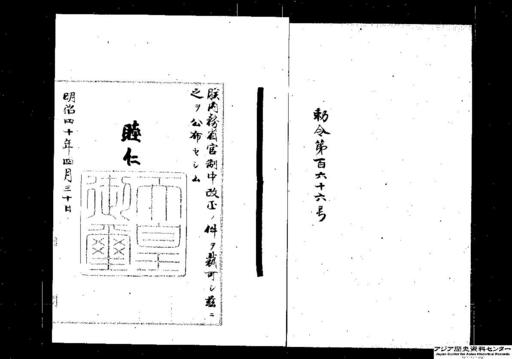 勅令第百六十六号
朕内務省官制中改正ノ件ヲ裁可シ茲ニ
之ヲ公布セシム
睦仁
天皇御璽
明治四十年四月三十日
アジア歴史資料センター
Japan Center for Asian Historical Records